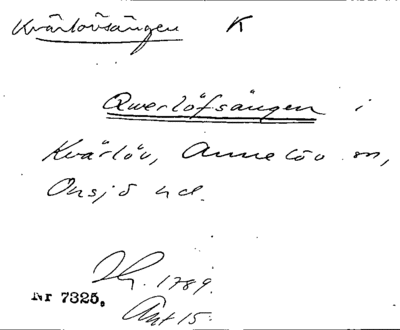 Kvärlövsängen K
Qwerlöfsängen i
Kvärlöv, Annelöv sn,
Onsjö hd.
1789.
Nr 7325.
Akt 15.